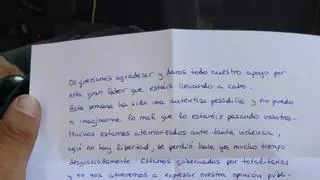 Os queríamos agradecer y daros todo nuestro apoyo por
esta gran labor que estáis llevando a cabo.
Esta semana ha sido una auténtica pesadilla y no puedo
ni imaginarme lo mal que lo estaréis pasando vosotros.
Muchos estamos atemorizados ante tanta violencia,
aquí no hay libertad, se perdió hace ya mucho tiempo
desgraciadamente. Estamos gobernados por totalitarios
y no nos atrevemos a expresar nuestra opinión públi-